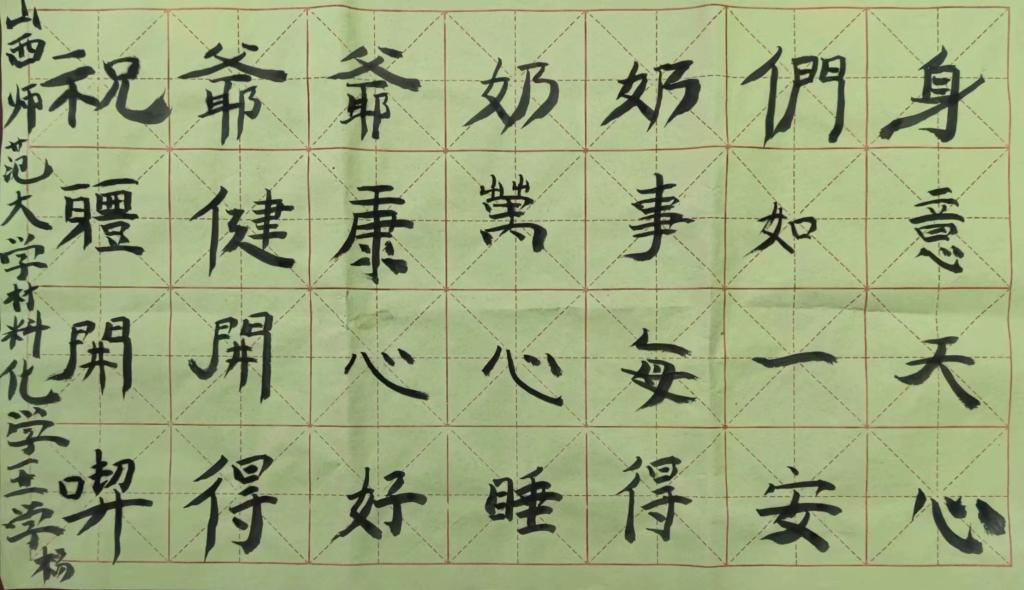 祝爺爺奶奶們身
軆健康萬事如意
開開心心每一天
喫得好睡得安心
山西师范大学材料化学王学杨